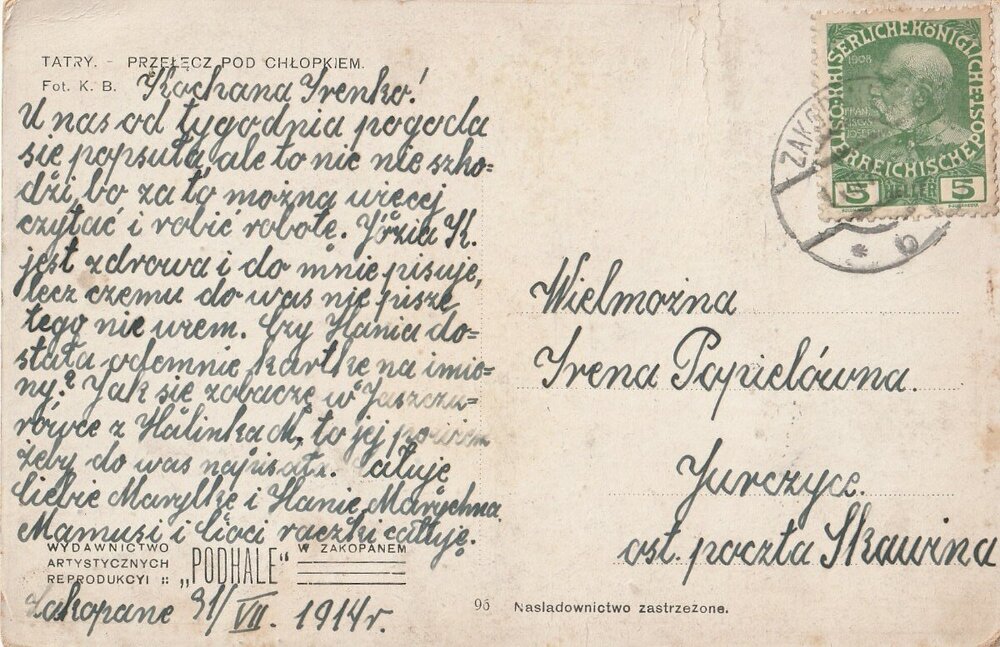 TATRY. - PRZEŁĘCZ POD CHŁOPKIEM.
Fot. K. B.
Kochana Irenko!
U nas od tygodnia pogoda
się popsuła, ale to nic nie szko=
dzi bo za to można więcej
czytać i robić robotę. Józia K.
jest zdrowa i do mnie pisuje,
lecz czemu do was nie pisze
tego nie wiem. Czy Hania do=
stała odemnie kartkę na imie=
ny? Jak się zobaczę w Jaszczu=
rówce z Halinką M, to jej powiem
żeby do was napisała. Całuję
Ciebie Marylkę i Hanię Marychna.
Mamusi i Cioci rączki całuję.
WYDAWNICTWO
ARTYSTYCZNYCH
REPRODUKCYI :: „PODHALE" W ZAKOPANEM
Zakopane 31/VII. 1914 r.
96
Nasladownictwo zastrzeżone.
KAISERLICHE KÖNIGLICHE
ÖSTERREICHISCHE POST
1908
FRANZ
JOSEF I
5 HELLER 5
* b
Wielmożna
Irena Popielówna.
Jurczyce.
ost. poczta Skawina